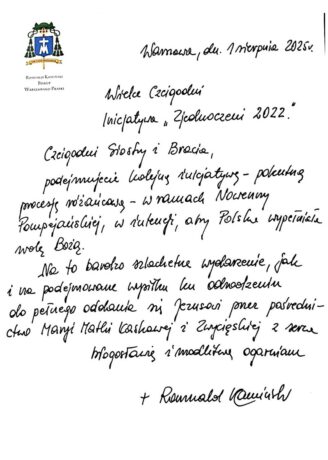 Romuald Kamiński
Biskup
Warszawsko-Praski
Warszawa, dn. 1 sierpnia 2025 r.
Wielce Czcigodni
Inicjatywa „Zjednoczeni 2022."
Czcigodni Siostry i Bracia,
podejmujecie kolejną inicjatywę - pokutną
procesję różańcową - w ramach Nowenny
Pompejańskiej, w intencji, aby Polska wypełniała
wolę Bożą.
Na to bardzo szlachetne wydarzenie, jak
i na podejmowane wysiłki ku odrodzeniu
do pełnego oddania się Jezusowi przez pośredni-
ctwo Maryi Matki Łaskawej i Zwycięskiej z serca
błogosławię i modlitwą ogarniam
+ Romuald Kamiński